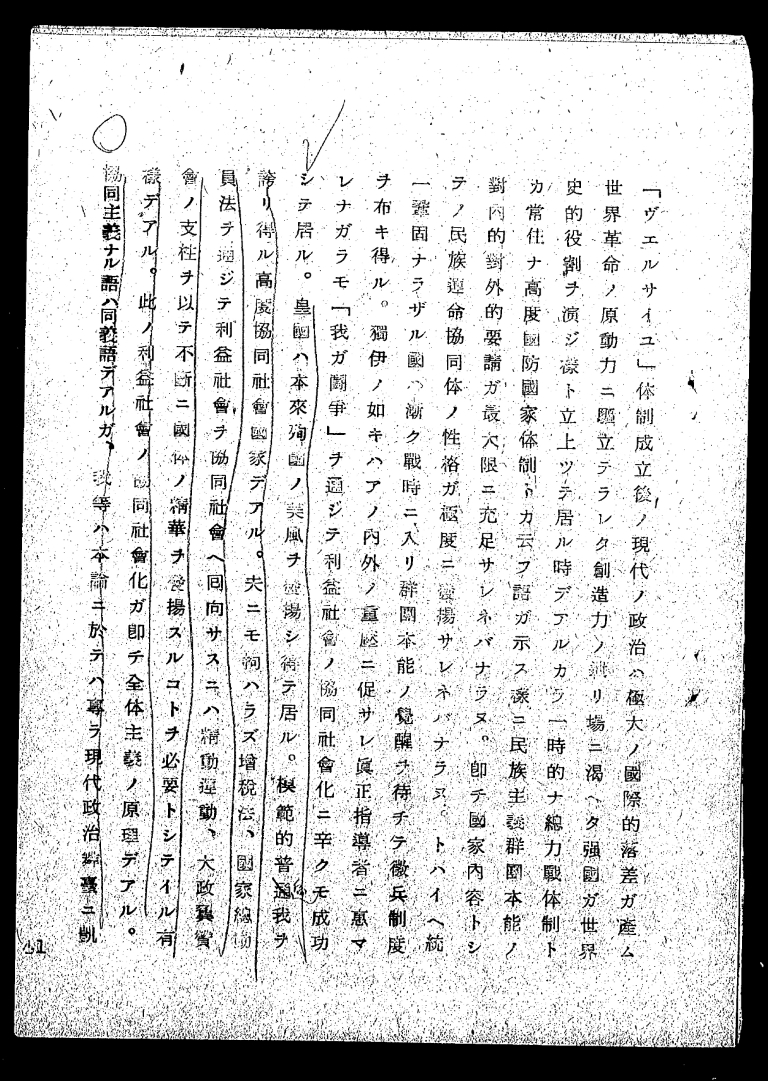 「ヴエルサイユ」体制成立後ノ現代ノ政治ハ極大ノ國際的落差ガ産ム
世界革命ノ原動力ニ驅立テラレタ創造力ノ捌リ場ニ渇ヘタ强國ガ世界
史的役割ヲ演ジ樣ト立上ツテ居ル時デアルカラ一時的ナ總力戰体制ト
カ常住ナ高度國防國家体制トカ云フ語ガ示ス樣ニ民族主義群團本能ノ
對内的對外的要請ガ最大限ニ充足サレネバナラヌ。卽チ國家内容トシ
テノ民族運命協同体ノ性格ガ極度ニ發揚サレネバナラヌ。トハイヘ統
一鞏固ナラザル國ハ漸ク戰時ニ入リ群團本能ノ覺醒ヲ待チテ徵兵制度
ヲ布キ得ル。獨伊ノ如キハアノ内外ノ重壓ニ促サレ眞正指導者ニ惠マ
レナガラモ「我ガ鬪爭」ヲ通ジテ利益社會ノ協同社會化ニ辛クモ成功
シテ居ル。皇國ハ本來殉國ノ美風ヲ發揚シ得テ居ル。模範的普遍我ヲ
誇リ得ル高度協同社會國家デアル。夫ニモ拘ハラズ增稅法、國家總動
員法ヲ通ジテ利益社會ヲ協同社會ヘ回向サスニハ精動運動、大政翼贊
會ノ支柱ヲ以テ不斷ニ國体ノ精華ヲ發揚スルコトヲ必要トシテイル有
樣デアル。此ノ利益社會ノ協同社會化ガ卽チ全体主義ノ原理デアル。
協同主義ナル語ハ同義語デアルガ、我等ハ本論ニ於テハ專ラ現代政治舞臺ニ凱
41